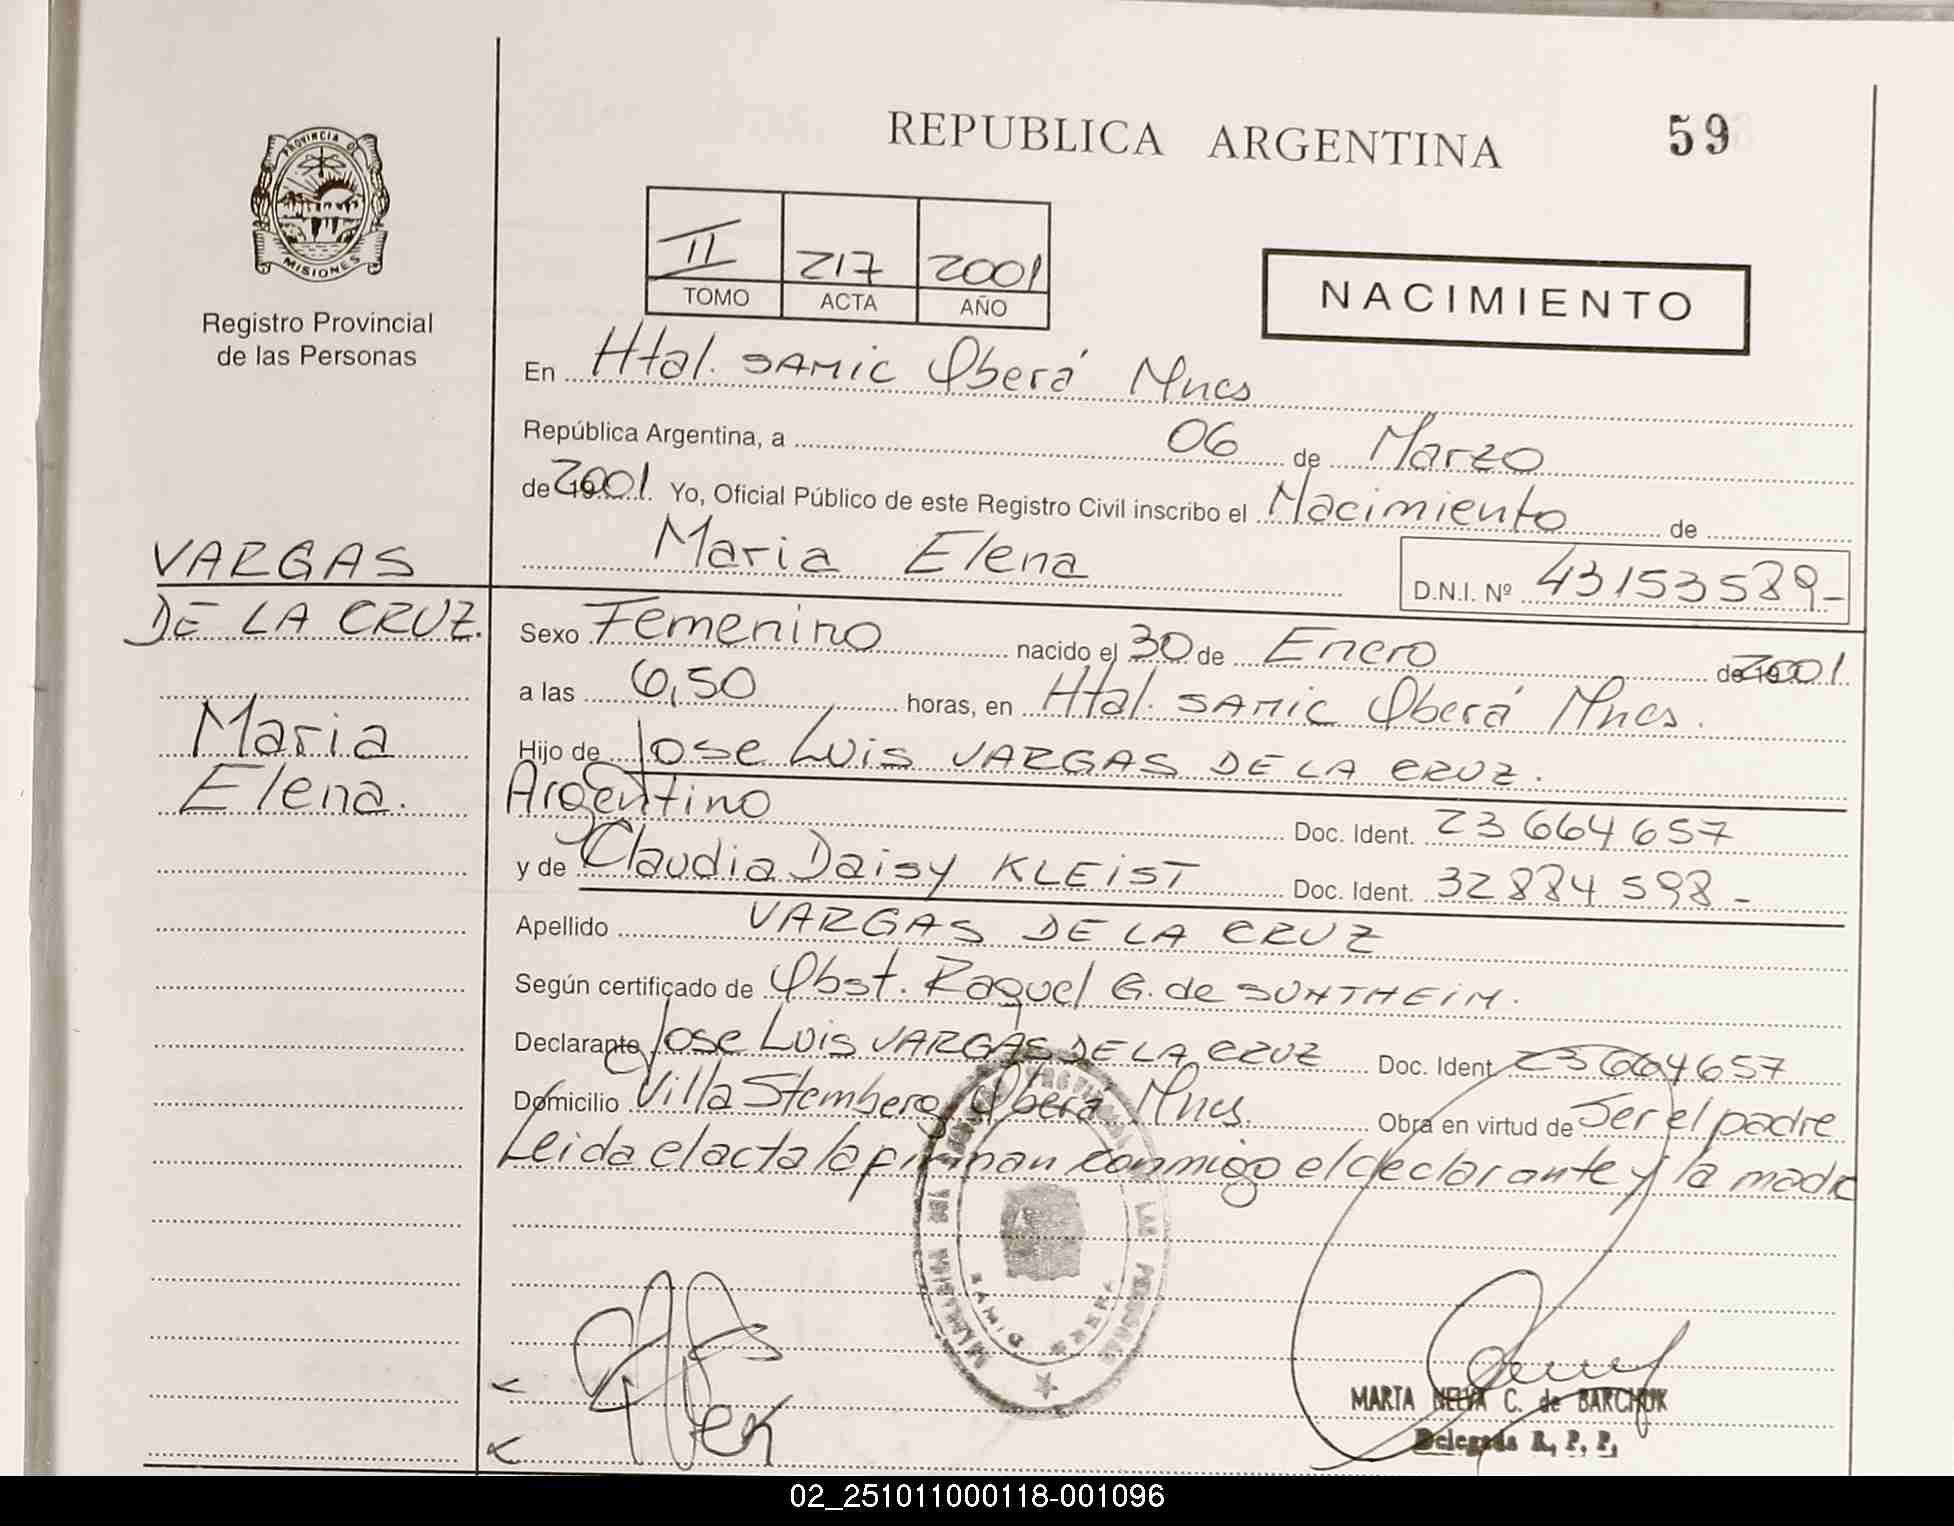 REPUBLICA ARGENTINA
59
PROVINCIA DE
MISIONES
Registro Provincial
de las Personas
II 217 2001
TOMO ACTA AÑO
NACIMIENTO
En Htal. SAMIC Oberá Mnes
República Argentina, a 06 de Marzo
de 2001. Yo, Oficial Público de este Registro Civil inscribo el Nacimiento de
Maria Elena
D.N.I. Nº 43153589-
VARGAS
DE LA CRUZ.
Maria
Elena.
Sexo Femenino nacido el 30 de Enero de 2001.
a las 6,50 horas, en Htal. SAMIC Oberá Mnes.
Hijo de Jose Luis VARGAS DE LA CRUZ.
Argentino Doc. Ident. 23664657
y de Claudia Daisy KLEIST Doc. Ident. 32884598-
Apellido VARGAS DE LA CRUZ
Según certificado de Obst. Raquel G. de SUNTHEIM.
Declarante Jose Luis VARGAS DE LA CRUZ Doc. Ident 23664657
Domicilio Villa Stemberg Oberá Mnes. Obra en virtud de Ser el padre
Leida el acta la firman conmigo el declarante y la madre
MARTA NELYA C. de BARCHUK
Delegada R. P. P.
02_251011000118-001096